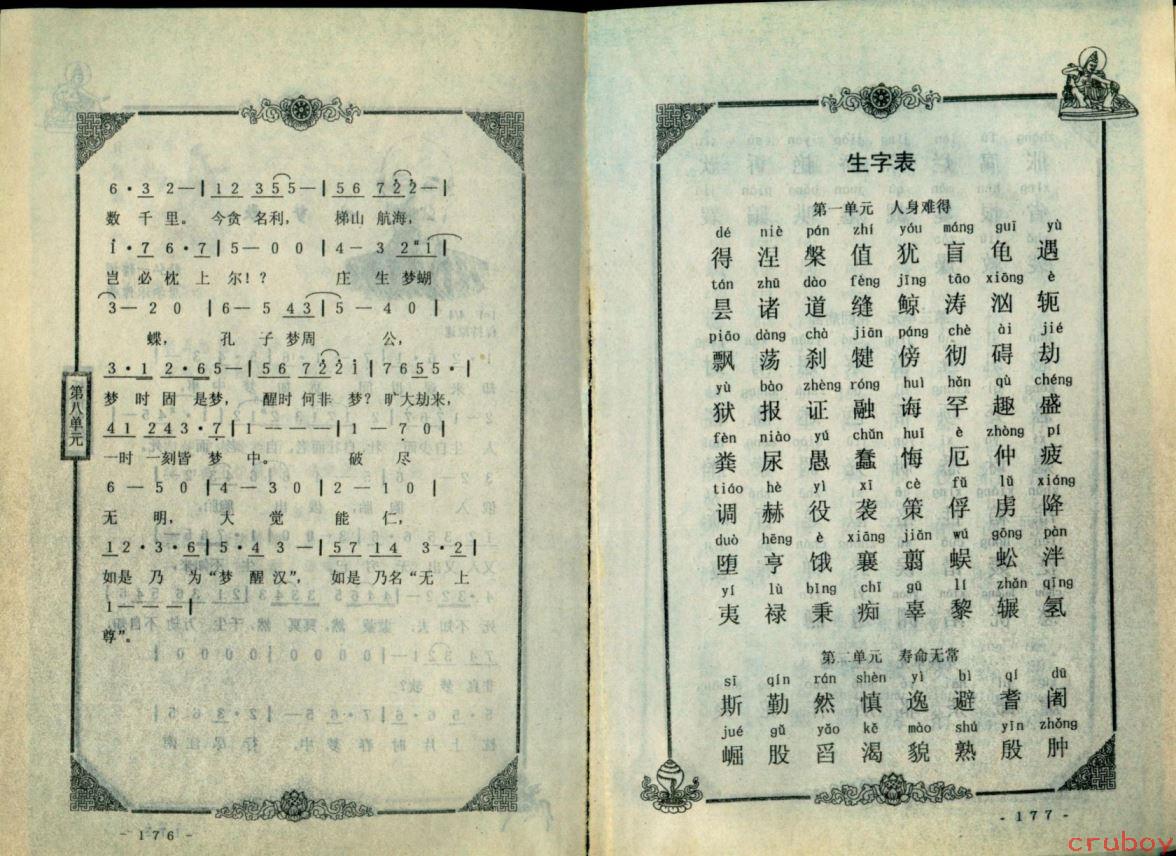 6·3 2—|12 355—|56 722—|
数 千 里。 今贪 名利, 梯山 航海,
1·7 6·7|5—0 0|4—3 2"1|
岂 必 枕 上 尔!? 庄 生 梦蝴
3—2 0|6—5 43|5—4 0|
蝶, 孔 子 梦周 公,
3·1 2·65—|56 7221|7655·|
梦 时 固 是梦, 醒时 何非 梦? 旷大劫来,
41 243·7|1———|1—7 0|
一时 一刻皆 梦 中。 破 尽
6—5 0|4—3 0|2—1 0|
无 明, 大 觉 能 仁,
12·3·6|5·43—|57 14 3·2|
如是 乃 为“梦 醒 汉”, 如是 乃名“无 上
1———|
尊”。
第八单元
- 176 -
生字表
第一单元 人身难得
dé niè pán zhí yóu máng guī yù
得 涅 槃 值 犹 盲 龟 遇
tán zhū dào fèng jīng tāo xiōng è
昙 诸 道 缝 鲸 涛 汹 轭
piāo dàng chà jiān páng chè ài jié
飘 荡 刹 犍 傍 彻 碍 劫
yù bào zhèng róng huì hǎn qù chéng
狱 报 证 融 诲 罕 趣 盛
fèn niào yú chǔn huǐ è zhòng pí
粪 尿 愚 蠢 悔 厄 仲 疲
tiáo hè yì xí cè fú lǔ xiáng
调 赫 役 袭 策 俘 虏 降
duò hēng è xiāng jiǎn wú gōng pàn
堕 亨 饿 襄 翦 蜈 蚣 泮
yí lù bǐng chī gū lí zhǎn qīng
夷 禄 秉 痴 辜 黎 辗 氢
第二单元 寿命无常
sī qín rán shèn yì bì qí dū
斯 勤 然 慎 逸 避 耆 阇
jué gǔ yǎo kě mào shú yīn zhǒng
崛 股 舀 渴 貌 熟 殷 肿
- 177 -
cruboy